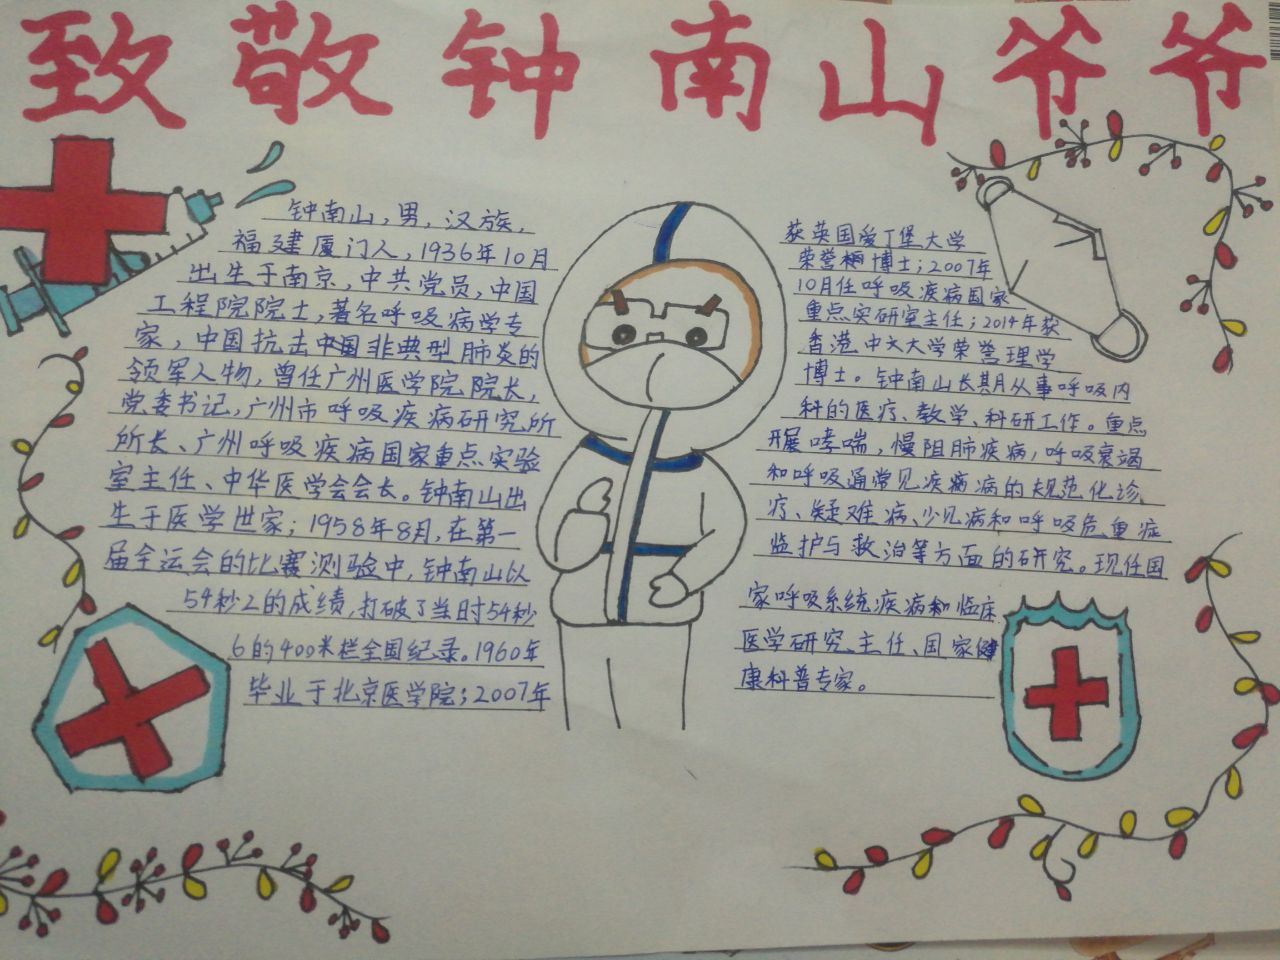 致敬钟南山爷爷
钟南山,男,汉族,
福建厦门人,1936年10月
出生于南京,中共党员,中国
工程院院士,著名呼吸病学专
家,中国抗击中国非典型肺炎的
领军人物,曾任广州医学院院长,
党委书记,广州市呼吸疾病研究所
所长、广州呼吸疾病国家重点实验
室主任、中华医学会会长。钟南山出
生于医学世家;1958年8月,在第一
届全运会的比赛测验中,钟南山以
54秒2的成绩,打破了当时54秒
6的400米栏全国纪录。1960年
毕业于北京医学院;2007年
获英国爱丁堡大学
荣誉博士;2007年
10月任呼吸疾病国家
重点实研室主任;2014年获
香港中文大学荣誉理学
博士。钟南山长期从事呼吸内
科的医疗、教学、科研工作。重点
开展哮喘,慢阻肺疾病,呼吸衰竭
和呼吸通常见疾病的规范化诊、
疗、疑难病、少见病和呼吸危重症
监护与救治等方面的研究。现任国
家呼吸系统疾病和临床
医学研究主任、国家健
康科普专家。